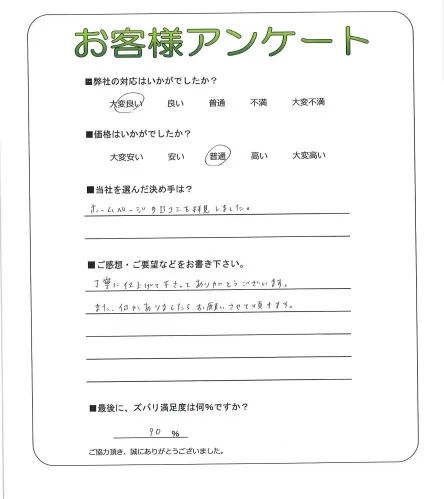 お客様アンケート
■弊社の対応はいかがでしたか？
大変良い 良い 普通 不満 大変不満
■価格はいかがでしたか？
大変安い 安い 普通 高い 大変高い
■当社を選んだ決め手は？
ホームページの口コミを拝見しました。
■ご感想・ご要望などをお書き下さい。
丁寧に仕上げて下さってありがとうございます。
また、何かありましたらお願いさせて頂きます。
■最後に、ズバリ満足度は何%ですか？
90 %
ご協力頂き、誠にありがとうございました。